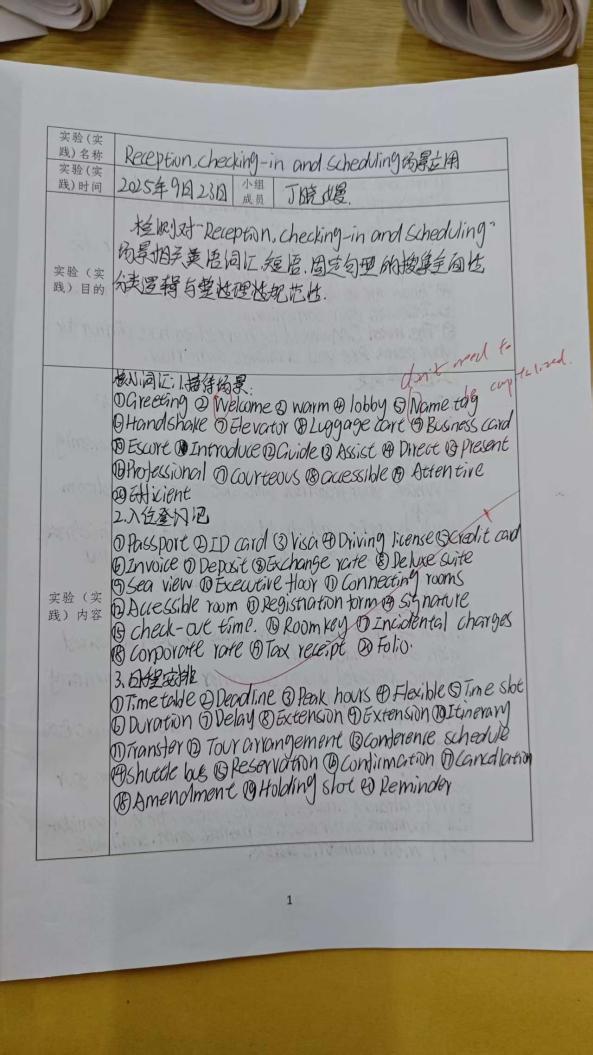 实验(实践)名称 Reception, checking-in and scheduling场景应用
实验(实践)时间 2025年9月23日 小组成员 丁晓
实验(实践)目的
检测对"Reception, checking-in and scheduling"
场景相关英语词汇、短语、固定句型的搜集全面性
分类逻辑与整理规范性.
don't need to
be capitalized.
实验(实践)内容
核心词汇: 1.接待场景:
①Greeting ② Welcome ③ warm ④ lobby ⑤ Name tag
⑥Handshake ⑦Elevator ⑧Luggage cart ⑨Business card
⑩Escort ⑪Introduce ⑫Guide ⑬Assist ⑭Direct ⑮Present
⑯Professional ⑰Courteous ⑱accessible ⑲ Attentive
⑳Efficient
2.入住登记
①Passport ②ID card ③Visa ④Driving license ⑤Credit card
⑥Invoice ⑦Deposit ⑧Exchange rate ⑧Deluxe suite
⑨Sea view ⑩Executive floor ⑪Connecting rooms
⑫Accessible room ⑬Registration form ⑭Signature
⑮ check-out time. ⑯Room key ⑰Incidental charges
⑱Corporate rate ⑲Tax receipt ⑳Folio.
3.日程安排
①Time table ②Deadline ③Peak hours ④Flexible ⑤Time slot
⑥Duration ⑦Delay ⑧Extension ⑨Extension ⑩Itinerary
⑪Transfer ⑫ Tour arrangement ⑬Conference schedule
⑭shuttle bus ⑮Reservation ⑯Confirmation ⑰Cancellation
⑱Amendment ⑲Holding slot ⑳Reminder
1